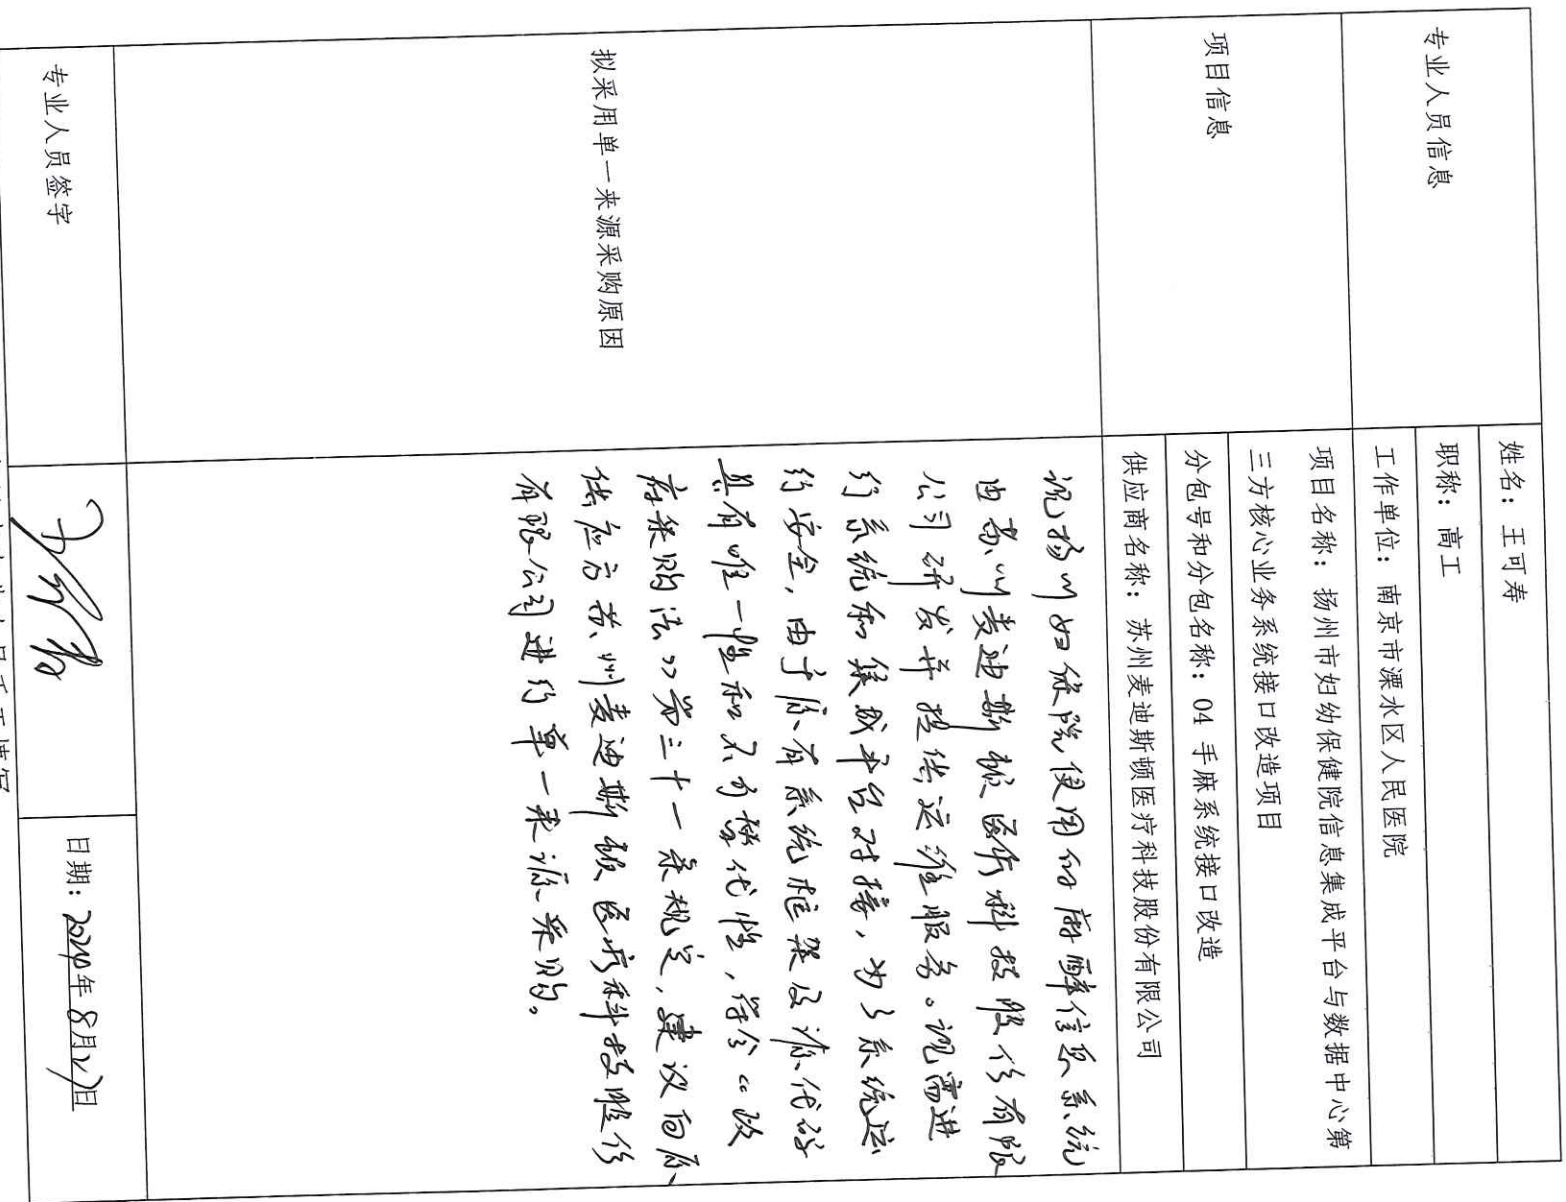 专业人员信息
姓名：王可寿
职称：高工
工作单位：南京市溧水区人民医院
项目信息
项目名称：扬州市妇幼保健院信息集成平台与数据中心第
三方核心业务系统接口改造项目
分包号和分包名称：04 手麻系统接口改造
供应商名称：苏州麦迪斯顿医疗科技股份有限公司
拟采用单一来源采购原因
现扬州妇保院使用的麻醉信息系统
由苏州麦迪斯顿医疗科技股份有限
公司研发并提供运维服务。现需进
行系统和集成平台对接，为了系统运
行安全，由于原有系统框架及源代码
具有唯一性和不可替代性，符合“政
府采购法”第三十一条规定，建议向原
供应方苏州麦迪斯顿医疗科技股份
有限公司进行单一来源采购。
专业人员签字
日期：2024年8月27日